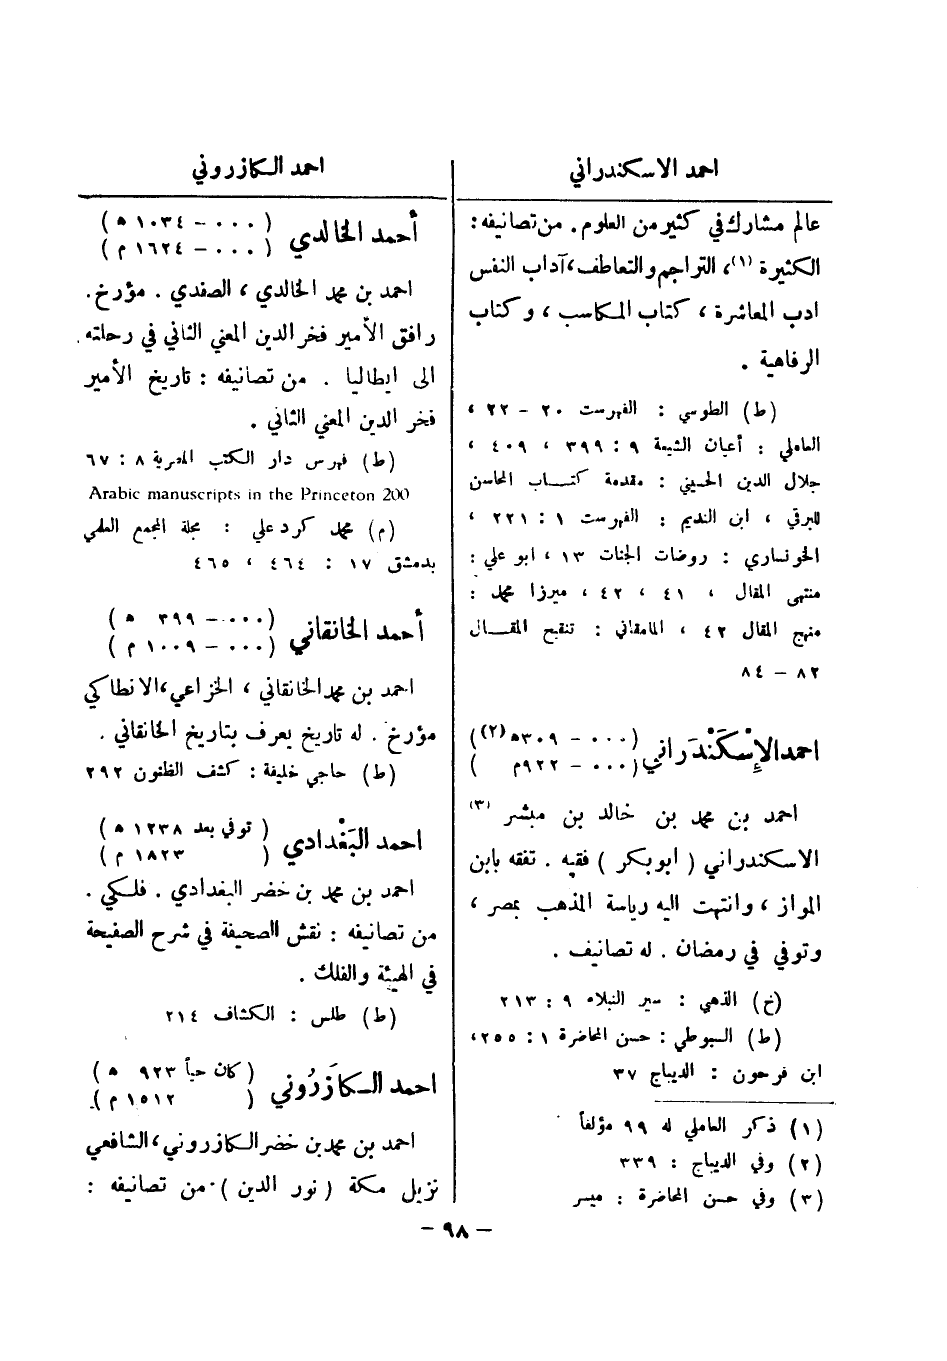 احمد الاسكندراني
عالم مشارك في كثير من العلوم. من تصانيفه:
الكثيرة (١)، التراجم والتعاطف، آداب النفس
ادب المعاشرة ، كتاب المكاسب ، وكتاب
الرفاهية .
(ط) الطوسي : الفهرست ٢٠ – ٢٢ ،
العاملي : أعيان الشيعة ٩ : ٣٩٩ ، ٤٠٩ ،
جلال الدين الحسيني : مقدمة كتاب المحاسن
للبرقي ، ابن النديم : الفهرست ١ : ٢٢١ ،
الخونساري : روضات الجنات ١٣ ، ابو علي :
منتهى المقال ، ٤١ ، ٤٢ ، ميرزا محمد :
منهج المقال ٤٢ ، المامقاني : تنقيح المقال
٨٢ – ٨٤
احمد الإسْكَنْدَراني (٠٠٠ – ٣٠٩ه (٢))
(٠٠٠ – ٩٢٢م )
احمد بن محمد بن خالد بن مبشر (٣)
الاسكندراني ( ابو بكر ) فقيه . تفقه بابن
المواز ، وانتهت اليه رياسة المذهب بمصر ،
وتوفي في رمضان . له تصانيف .
(خ) الذهبي : سير النبلاء ٩ : ٢١٣
(ط) السيوطي : حسن المحاضرة ١ : ٢٥٥،
ابن فرحون : الديباج ٣٧
(١) ذكر العاملي له ٩٩ مؤلفاً
(٢) وفي الديباج : ٣٣٩
(٣) وفي حسن المحاضرة : ميسر
احمد الكازروني
أحمد الخالدي (٠٠٠ – ١٠٣٤ ه )
(٠٠٠ – ١٦٢٤ م )
احمد بن محمد الخالدي ، الصفدي . مؤرخ.
رافق الأمير فخر الدين المعني الثاني في رحلته
الى ايطاليا . من تصانيفه : تاريخ الأمير
فخر الدين المعني الثاني .
(ط) فهرس دار الكتب المصرية ٨ : ٦٧
Arabic manuscripts in the Princeton 200
(م) محمد كرد علي : مجلة المجمع العلمي
بدمشق ١٧ : ٤٦٤ ، ٤٦٥
أحمد الخانقاني (٠٠٠ – ٣٩٩ ه )
(٠٠٠ – ١٠٠٩ م )
احمد بن محمد الخانقاني ، الخزاعي، الانطاكي
مؤرخ . له تاريخ يعرف بتاريخ الخانقاني .
(ط) حاجي خليفة : كشف الظنون ٢٩٢
احمد البَغْدادي ( توفي بعد ١٢٣٨ ه )
( ١٨٢٣ م )
احمد بن محمد بن خضر البغدادي . فلكي .
من تصانيفه : نقش الصحيفة في شرح الصفيحة
في الهيئة والفلك .
(ط) طلس : الكشاف ٢١٤
احمد الكازَرُوني ( كان حياً ٩٢٣ ه )
( ١٥١٢ م )
احمد بن محمد بن خضر الكازروني، الشافعي
نزيل مكة ( نور الدين ) . من تصانيفه :
– ٩٨ –